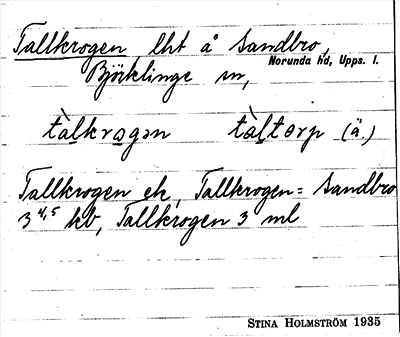 Tallkrogen lht å Sandbro,
Norunda hd, Upps. l.
Björklinge sn,
tàlkrogən tàltorp (ä.)
Tallkrogen ek, Tallkrogen = Sandbro
3 4,5 kb, Tallkrogen 3 ml
STINA HOLMSTRÖM 1935